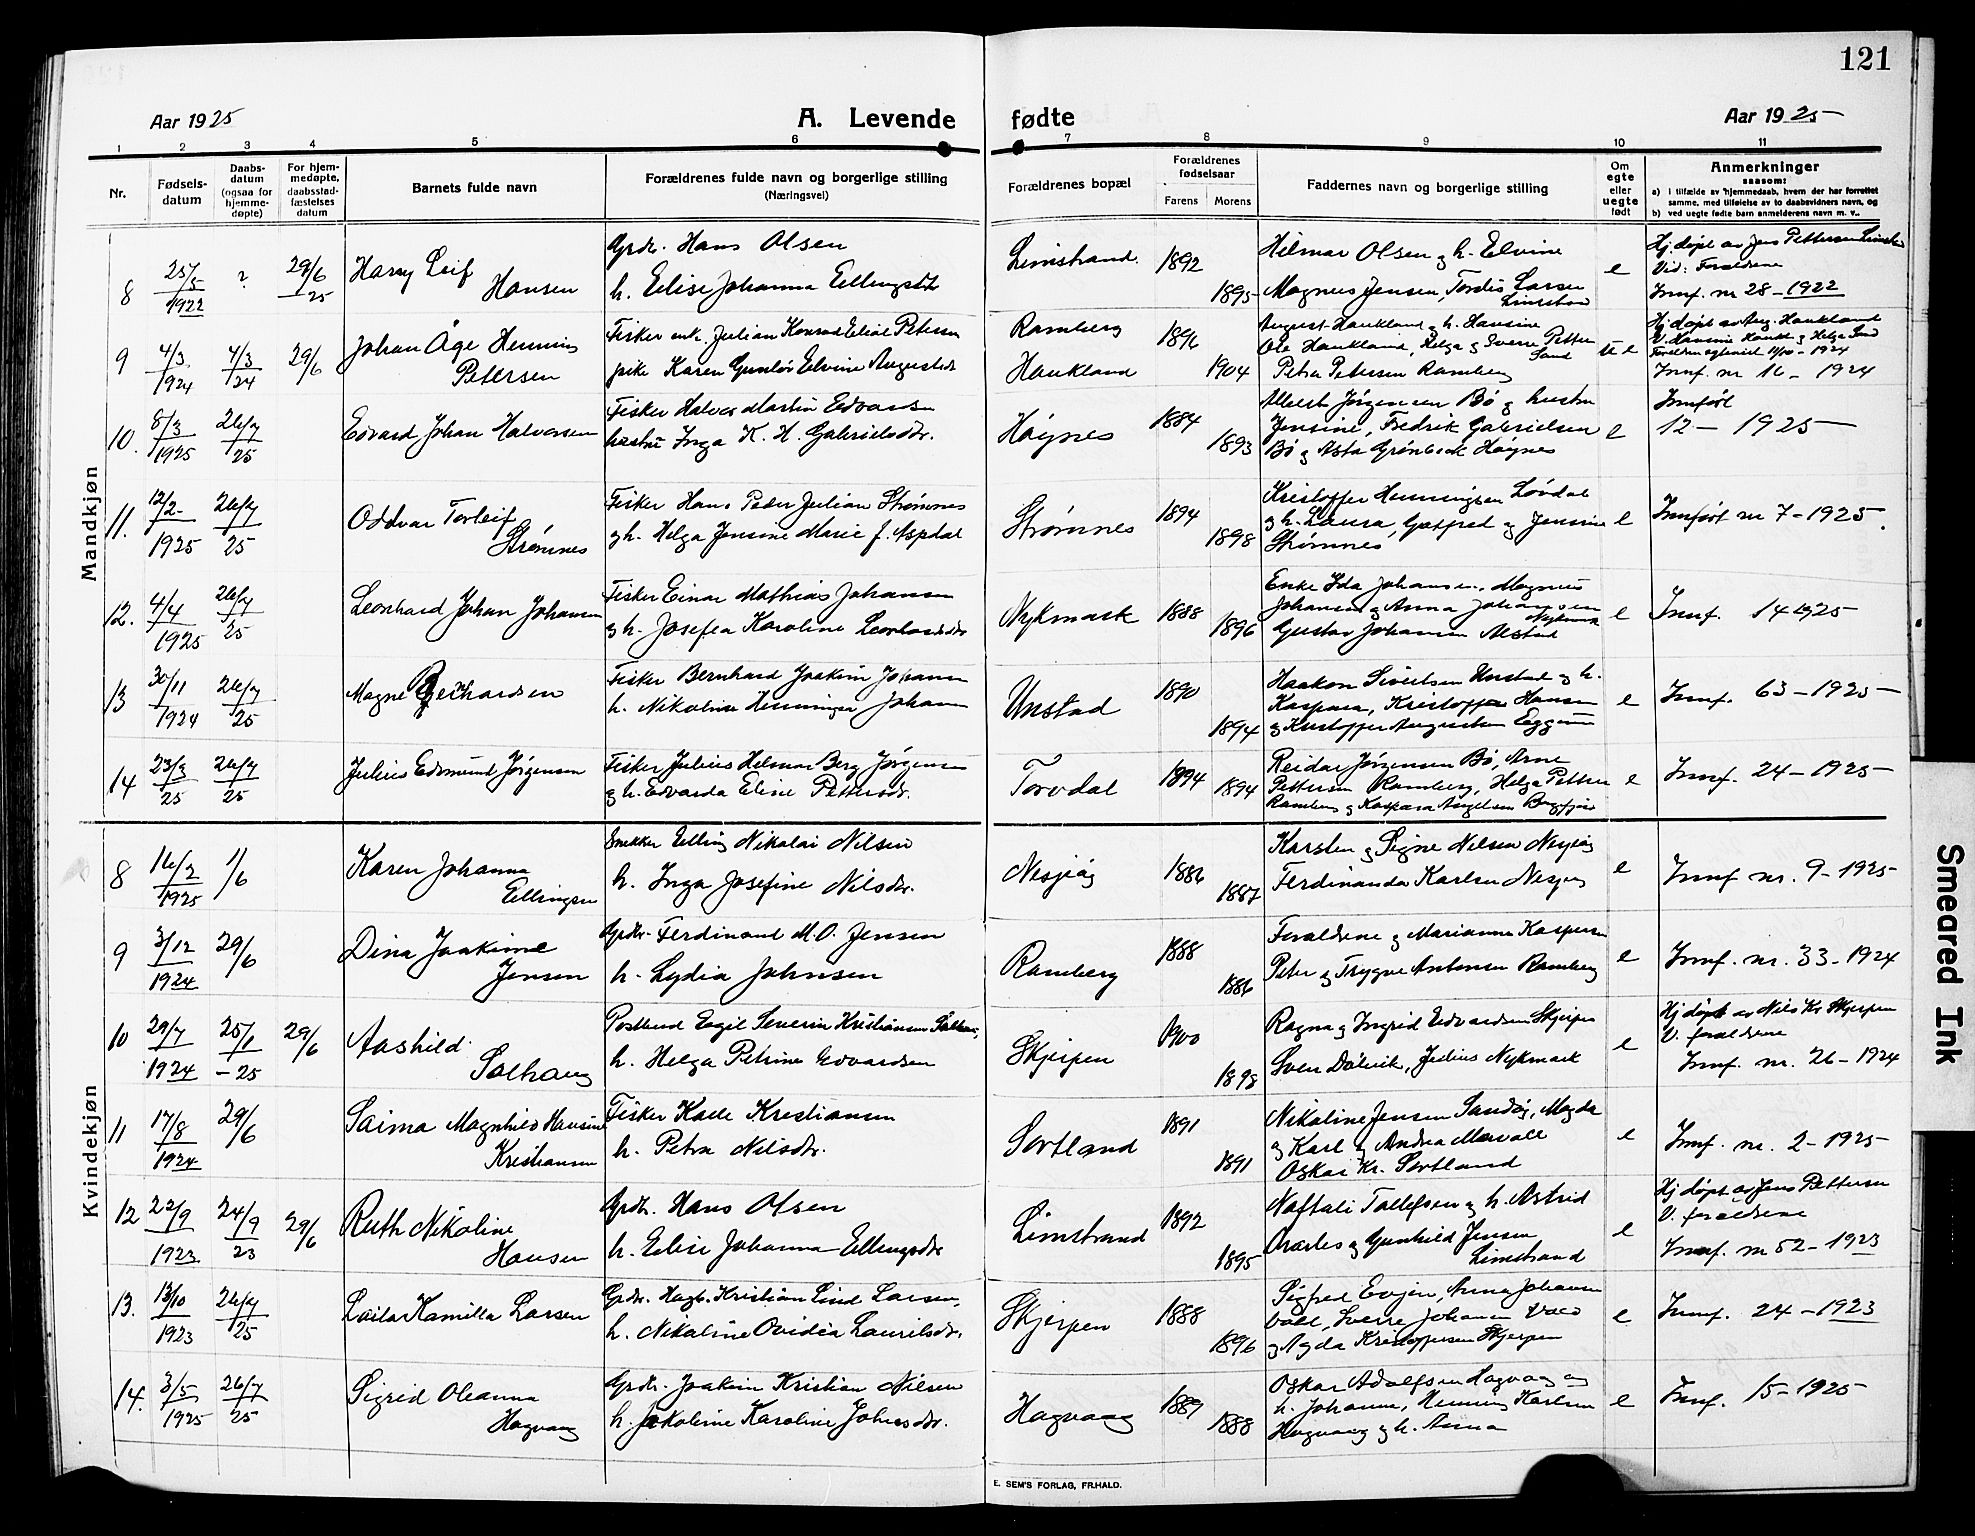 121
Aar 1925
A. Levende fødte
Aar 1925
1 2 3 4 5 6 7 8 9 10 11
Nr.
Fødsels-
datum
Daabs-
datum
(ogsaa for
hjemme-
døpte)
For hjem-
medøpte,
daabsstad-
fæstelses
datum
Barnets fulde navn
Forældrenes fulde navn og borgerlige stilling
(Næringsvei)
Forældrenes bopæl
Forældrenes
fødselsaar
Farens Morens
Faddernes navn og borgerlige stilling
Om
egte
eller
uegte
født
Anmerkninger
saasom:
a) i tilfælde av hjemmedaab, hvem der har forrettet
samme, med tilføielse av to daabsvidners navn, og
b) ved uegte fødte barn anmelderens navn m. v..
Mandkjøn
8 25/5 1922 ? 29/6 25
Harry Leif
Hansen
Grdr. Hans Olsen
h. Elise Johanna Ellingsdtr
Limstrand 1892 1895
Hilmar Olsen og h. Elvine
Magnus Jensen, Tordis Larsen
Limstrand
e
Hj. døpt av Jens Pettersen Limstr
Vid: Forældrene
Innf. nr 28 - 1922
9 4/3 1924 4/3 24 29/6
Johan Åge Henning
Pettersen
Fisker enk. Julian Konrad Elial Petersen
pike Karen Gunlör Elvine Augustsdtr
Ramberg
Haukland
1896 1904
August Haukland og h. Hansine
Ole Haukland, Helga og Sverre Petter
Sund
Petra Petersen Ramberg
u e
Hj. døpt av Aug. Haukland
Innf. nr 16 - 1924
10. 8/3 1925 26/7 25
Edvard Johan Halvorsen
Fisker Halvor Martin Edvardsen
hustru Inga K. H. Gabrielsdtr.
Høynes 1884 1893
Albert Jørgensen Bø og hustru
Jensine, Fredrik Gabrielsen
Bø og Asta Grønbeck Høynes
e
Innført
12 - 1925
11. 12/2 1925 26/7 25
Oddvar Torleif
Strømnes
Fisker Hans Peder Julian Strømnes
og h. Helga Jensine Marie f. Aspdal
Strømnes 1894 1898
Kristoffer Henningsen Løvdal
og h. Laura, Gotfred og Jensine
Strømnes
e
Innført nr 7 - 1925
12. 4/4 1925 26/7 25
Leonhard Johan Johansen
Fisker Einar Mathias Johansen
og h. Josefea Karoline Leonhardsdtr
Nykmark 1888 1896
Enke Ida Johansen, Magnus
Johansen og Anna Johansen
Nykmark
Gustav Johansen Alstad
e
Innf. 14 1925
13 30/11 1924 26/7 25
Magne Gerhardsen
Fisker Bernhard Joakim Johansen
h. Nikoline Henninga Johansen
Unstad 1890 1894
Haakon Sivertsen Unstad og h.
Kaspara, Kristoffer Hansen
og Kristoffer Augustsen Eggum
e
Innf. 63 - 1925
14 23/3 25 26/7 25
Julius Edmund Jørgensen
Fisker Julius Helmar Berg Jørgensen
og h. Edvarda Eline Pettersdtr.
Torvdal 1894 1894
Reidar Jørgensen Bø, Arne
Pettersen Ramberg, Helga Pettersen
Ramberg og Kaspara Angelsen Borgfjord
e
Innf. 24 - 1925
Kvindekjøn
8 16/2 1925 1/6
Karen Johanna
Ellingsen
Snekker Elling Nikolai Nilsen
h. Inga Josefine Nilsdtr.
Nesjeåg 1886 1887
Karsten og Signe Nilsen Nesjeåg
Ferdinanda Karlsen Nesjeåg
e
Innf nr. 9 - 1925
9 3/12 1924 29/6
Dina Joakime
Jensen
Grdr. Ferdinand M. O. Jensen
h. Lydia Johnsen
Ramberg 1888 1886
Forældrene og Marianne Kaspersen
Peter og Trygve Antonsen Ramberg
e
Innf. nr. 33 - 1924
10 29/7 1924 25/1 - 25 29/6
Aashild
Solhaug
Postbud Engil Severin Kristiansen Solhaug,
h. Helga Petrine Edvardsen
Skjerpen 1900 1898
Ragna og Ingrid Edvardsen Skjerpen
Sven Dalvik, Julius Nykmark
e
Hj døpt av Nils Kr Skjerpen
V. forældrene
Innf. nr. 26 - 1924
11 17/8 1924 29/6
Saima Magnhild Hansine
Kristiansen
Fisker Kalle Kristiansen
h. Petra Nilsdtr.
Sortland 1891 1891
Nikoline Jensen Sandøy, Magda
og Karl og Andrea Mærvoll
Oskar Kr. Sortland
e
Innf. nr. 2 - 1925
12 22/9 1923 24/9 23 29/6
Ruth Nikoline
Hansen
Grdr. Hans Olsen
h. Elise Johanna Ellingsdtr
Limstrand 1892 1895
Naftali Tollefsen og h. Astrid
Charles og Gunhild Jensen
Limstrand
e
Hj døpt av Jens Pettersen
V. forældrene
Innf. nr 52 - 1923
13. 13/10 1923 26/7 25
Laila Kamilla Larsen
Grdr. Hagb. Kristian Lind Larsen,
h. Nikoline Ovidea Lauritsdtr.
Skjerpen 1888 1896
Sigfred Evjen, Anna Johansen
Voll, Sverre Johansen Vold
og Agda Kristoffersen Skjerpen
e
Innf. 24 - 1923
14. 3/5 1925 26/7 25
Sigrid Oleanna
Hagvaag
Grdr. Joakim Kristian Nilsen
h. Jakobine Karoline Johnsdtr.
Hagvaag 1889 1888
Oskar Adolfsen Hagvaag og
h. Johanna, Henning Karlsen
Hagvaag og h. Anna
e
Innf. 15 - 1925
E. SEM'S FORLAG, FR.HALD.
Smeared Ink